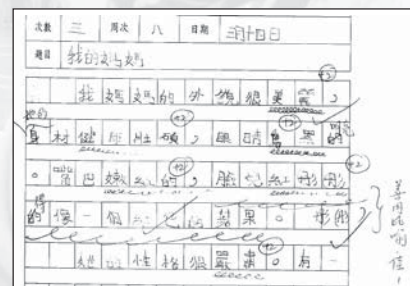 次數 三 周次 八 日期 三月十四日
題目 我的媽媽
我媽媽的外貌很美麗，
+3
她的
身材健 壯碩，眼睛烏黑的
+2
。嘴巴嫩紅的，臉 紅彤彤
+2
+2
得
的像一個紅 蘋果。
彤彤
她的性格很嚴肅。有一
+2
善用比喻，佳！